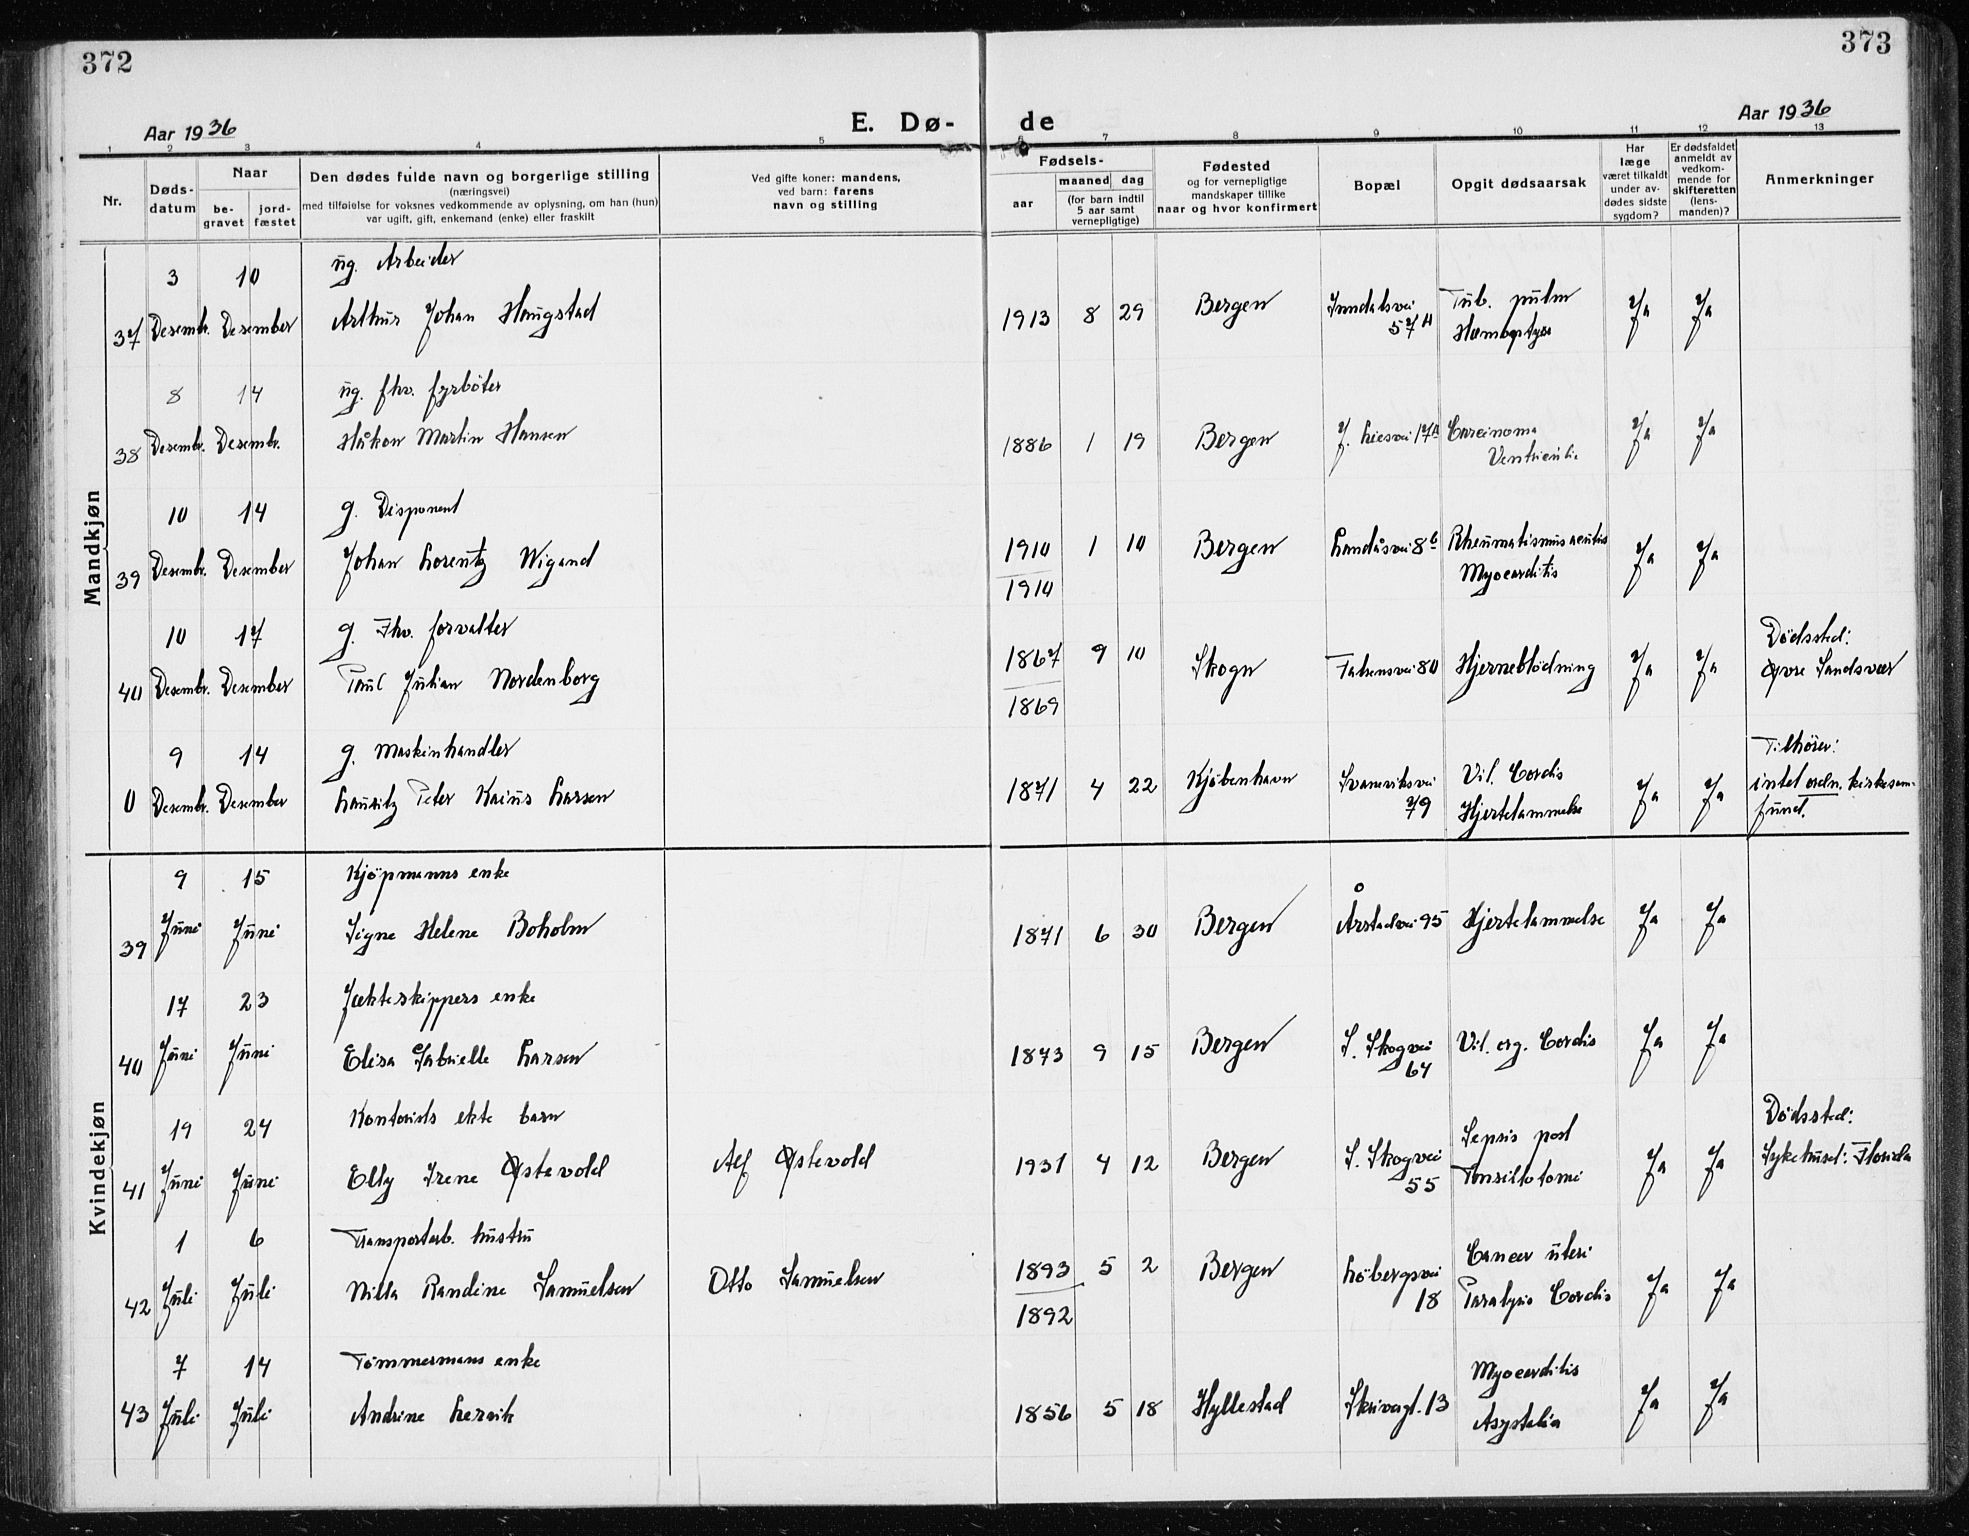 372
373
Aar 1936
E. Dø-
de
Aar 1936
1 2 3 4 5 6 7 8 9 10 11 12 13
Nr.
Døds-
datum
Naar
be-
gravet
jord-
fæstet
Den dødes fulde navn og borgerlige stilling
(næringsvei)
med tilføielse for voksnes vedkommende av oplysning, om han (hun)
var ugift, gift, enkemand (enke) eller fraskilt
Ved gifte koner: mandens,
ved barn: farens
navn og stilling
Fødsels-
aar
maaned dag
(for barn indtil
5 aar samt
vernepligtige)
Fødested
og for vernepligtige
mandskaper tillike
naar og hvor konfirmert
Bopæl
Opgit dødsaarsak
Har
læge
været tilkaldt
under av-
dødes sidste
sygdom?
Er dødsfaldet
anmeldt av
vedkom-
mende for
skifteretten
(lens-
manden)?
Anmerkninger
Mandkjøn
3 10 ug. Arbeider
37 Desembr. Desember Arthur Johan Haugstad 1913 8 29 Bergen Inndalsvei Tub. pulm Ja Ja
57A Hæmoptyse
8 14 ug. fhv. fyrbøter
38 Desembr. Desembr. Håkon Martin Hansen 1886 1 19 Bergen J. Liesvei 17A Carcinoma Ja Ja
10 14 g. Disponent
39 Desembr. Desember Johan Lorentz Wigand 1910 1 10 Bergen Landåsvei 8b Rheumatismus acutus Ja Ja
1910 Myocarditis
10 17 g. Fhv. forvalter Dødssted:
40 Desembr. Desember Paul Julian Nordenborg 1867 9 10 Skogn Falsensvei 80 Hjerneblødning Ja Ja Øvre Sandsvær
1869
9 14 g. Maskinhandler Tilhører:
0 Desembr. Desember Lauritz Peter Kaius Larsen 1871 4 22 Kjøbenhavn Svaneviksvei Vit. Cordis Ja Ja intet ordn. kirkesam-
79 Hjertelammelse fund.
Kvindekjøn
9 15 Kjøpmanns enke
39 Juni Juni Signe Helene Boholm 1871 6 30 Bergen Årstadvei 95 Hjertelammelse Ja Ja
17 23 Jækteskippers enke
40 Juni Juni Elisa Gabrielle Larsen 1873 9 15 Bergen S. Skogvei Vit. org. Cordis Ja Ja
64
19 24 Kontorists ekte barn Dødssted:
41 Juni Juni Elly Irene Østevold Alf Østevold 1931 4 12 Bergen S. Skogvei Sepsis post Ja Ja Sykehuset: Florida
55 Tonsillotomi
1 6 Transportarb. hustru
42 Juli Juli Nilla Randine Samuelsen Otto Samuelsen 1893 5 2 Bergen Løbergsvei Cancer uteri Ja Ja
1892 18 Paralysis Cordis
7 14 Tømmermans enke
43 Juli Juli Andrine Lervik 1856 5 18 Hyllestad Skriverg. 13 Myocarditis Ja Ja